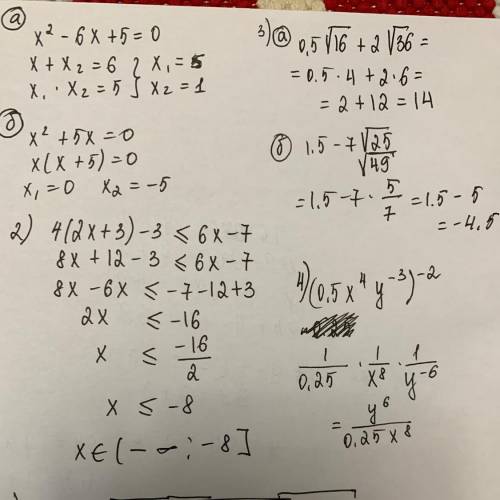 а) x² - 6x + 5 = 0
x + x₂ = 6 } x₁ = 5
x₁ · x₂ = 5 } x₂ = 1
б) x² + 5x = 0
x(x + 5) = 0
x₁ = 0 x₂ = -5
2) 4(2x + 3) - 3 ≤ 6x - 7
8x + 12 - 3 ≤ 6x - 7
8x - 6x ≤ -7 - 12 + 3
2x ≤ -16
x ≤ -16/2
x ≤ -8
x ∈ (-∞; -8]
3) а) 0,5√16 + 2√36 =
= 0.5 · 4 + 2 · 6 =
= 2 + 12 = 14
б) 1.5 - 7 √25/√49
= 1.5 - 7 · 5/7 = 1.5 - 5
= -4.5
4) (0,5x⁴ y⁻³)⁻²
1/0,25 · 1/x⁸ · 1/y⁻⁶
= y⁶/0,25x⁸